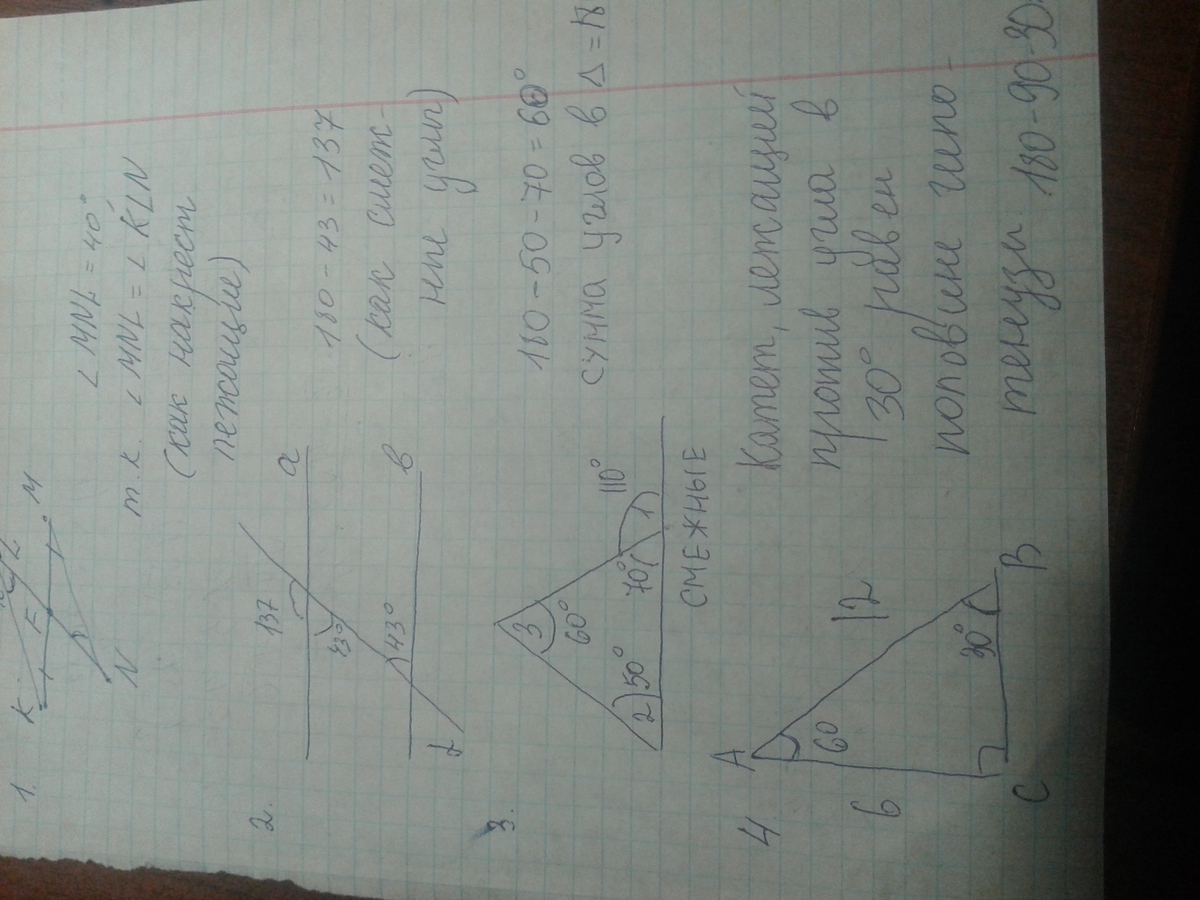 1.
K
L
E
M
N
∠ MNL = 40°
т.к. ∠ MNL = ∠ KLN
(как накрест
лежащие)
2.
137
a
43°
43°
в
180 - 43 = 137
(как смеж-
ные углы)
3.
3
60°
2
50°
70°
1
110°
СМЕЖНЫЕ
180 - 50 - 70 = 60°
сумма углов в Δ =
4
A
60
6
12
30°
C
B
Катет, лежащий
против угла в
30° равен
половине гипо-
тенузы. 180-90-30